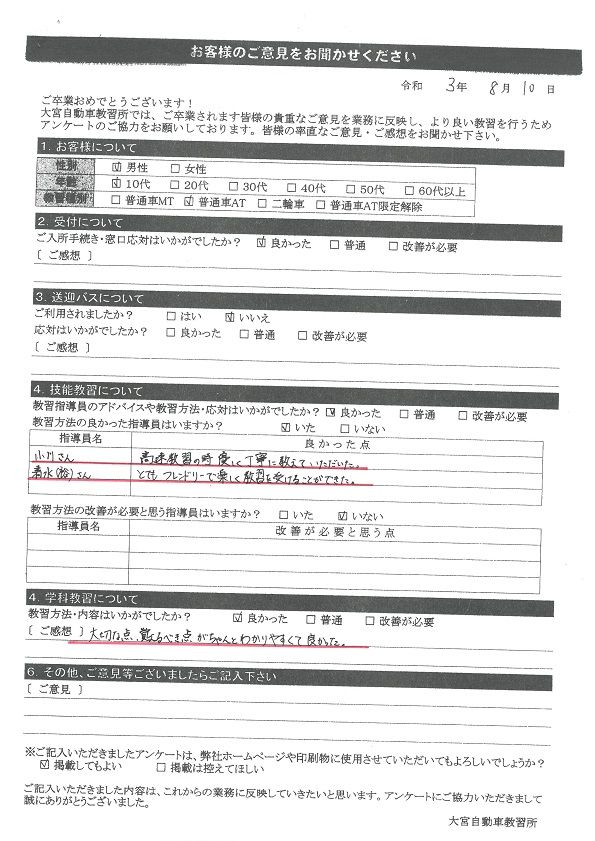 お客様のご意見をお聞かせください
令和 3年 8月 10日
ご卒業おめでとうございます！
大宮自動車教習所では、ご卒業されます皆様の貴重なご意見を業務に反映し、より良い教習を行うため
アンケートのご協力をお願いしております。皆様の率直なご意見・ご感想をお聞かせ下さい。
1. お客様について
性別 ☑ 男性 □ 女性
年齢 ☑ 10代 □ 20代 □ 30代 □ 40代 □ 50代 □ 60代以上
教習種別 □ 普通車MT ☑ 普通車AT □ 二輪車 □ 普通車AT限定解除
2. 受付について
ご入所手続き・窓口応対はいかがでしたか？ ☑ 良かった □ 普通 □ 改善が必要
〔 ご感想 〕
3. 送迎バスについて
ご利用されましたか？ □ はい ☑ いいえ
応対はいかがでしたか？ □ 良かった □ 普通 □ 改善が必要
〔 ご感想 〕
4. 技能教習について
教習指導員のアドバイスや教習方法・応対はいかがでしたか？ ☑ 良かった □ 普通 □ 改善が必要
教習方法の良かった指導員はいますか？ ☑ いた □ いない
指導員名 良かった点
小川さん 高速教習の時優しく丁寧に教えていただいた。
清水(裕)さん とてもフレンドリーで楽しく教習を受けることができた。
教習方法の改善が必要と思う指導員はいますか？ □ いた ☑ いない
指導員名 改善が必要と思う点
4. 学科教習について
教習方法・内容はいかがでしたか？ ☑ 良かった □ 普通 □ 改善が必要
〔 ご感想 〕 大切な点、覚えるべき点がちゃんとわかりやすくて良かった。
6. その他、ご意見等ございましたらご記入下さい
〔 ご意見 〕
※ご記入いただきましたアンケートは、弊社ホームページや印刷物に使用させていただいてもよろしいでしょうか？
☑ 掲載してもよい □ 掲載は控えてほしい
ご記入いただきました内容は、これからの業務に反映していきたいと思います。アンケートにご協力いただきまして
誠にありがとうございました。
大宮自動車教習所